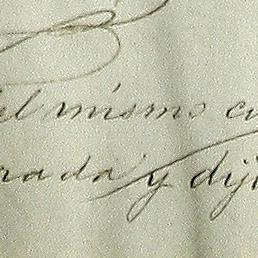 del mismo cu
rada y dij